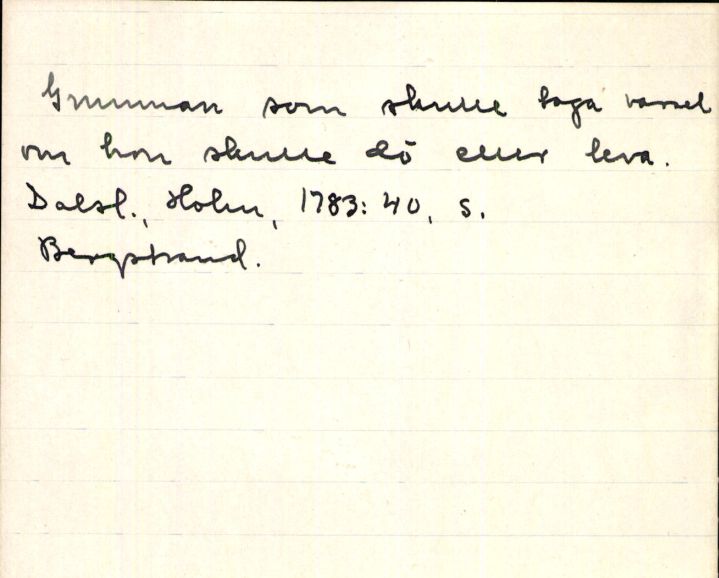 Gumman som skulle taga varsel
om hon skulle dö eller leva.
Dalsl., Holm, 1783: 40, s.
Bergstrand.